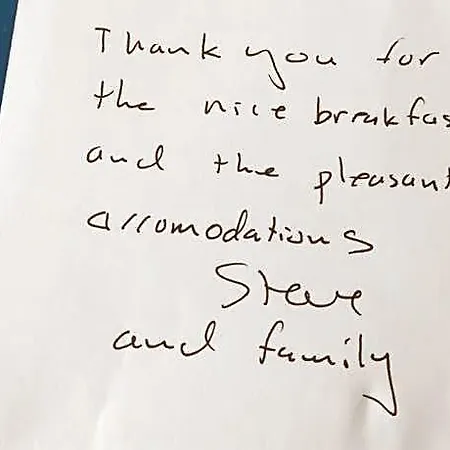 Thank you for
the nice breakfas
and the pleasant
accomodations
Steve
and family